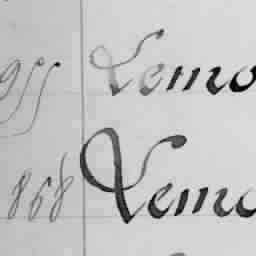 955 Lemo
868 Lemo